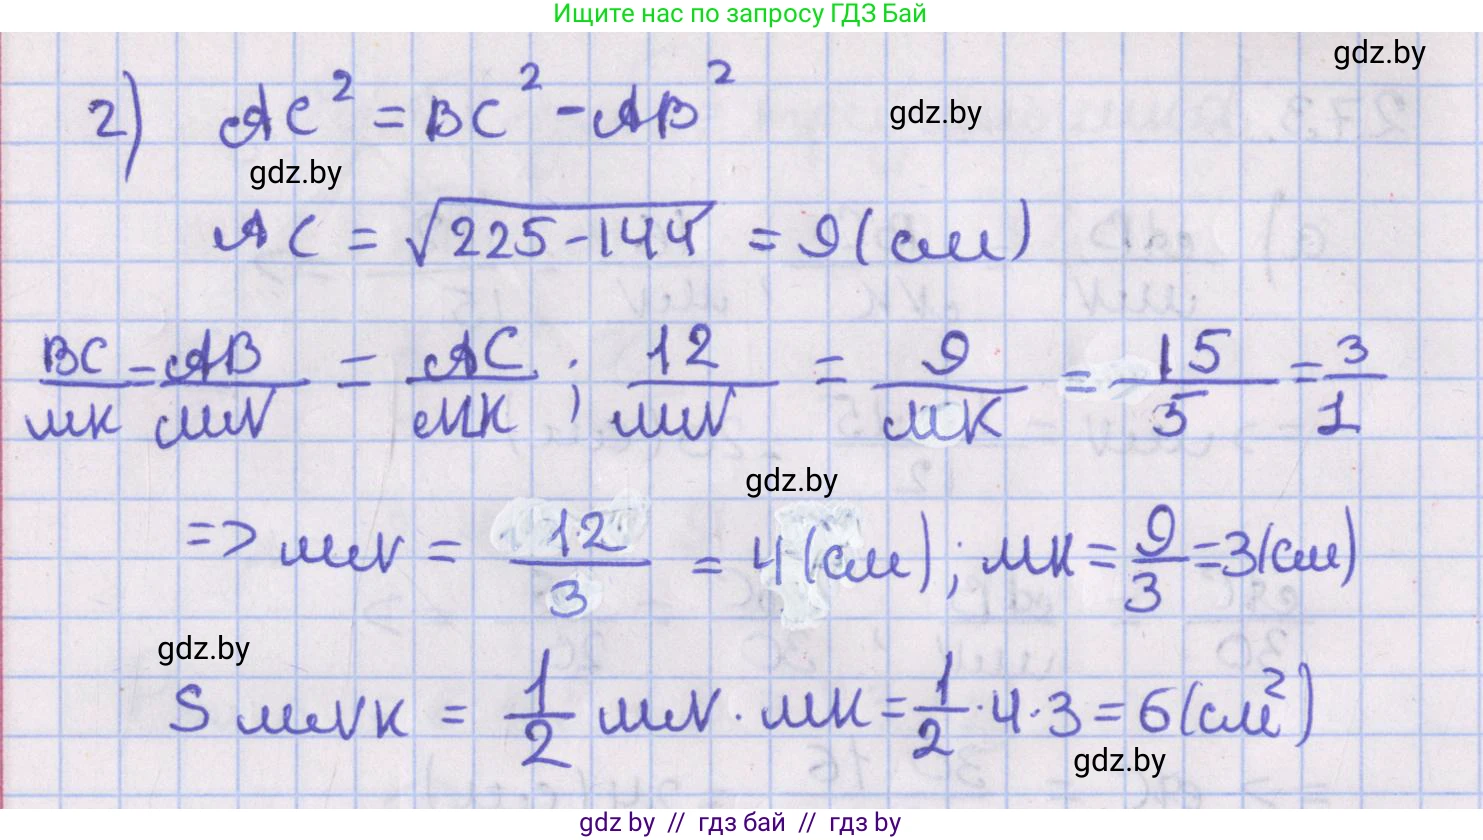 Ищите нас по запросу ГДЗ Бай
gdz.by
2) AC² = BC² - AB²
gdz.by
gdz.by
AC = √225-144 = 9 (см)
BC/MK = AB/MN = AC/MK ; 12/MN = 9/MK = 15/5 = 3/1
gdz.by
=> MN = 12/3 = 4 (см) ; MK = 9/3 = 3 (см)
gdz.by
S MNK = 1/2 MN · MK = 1/2 · 4 · 3 = 6 (см²)
gdz.by
gdz by // гдз бай // гдз by